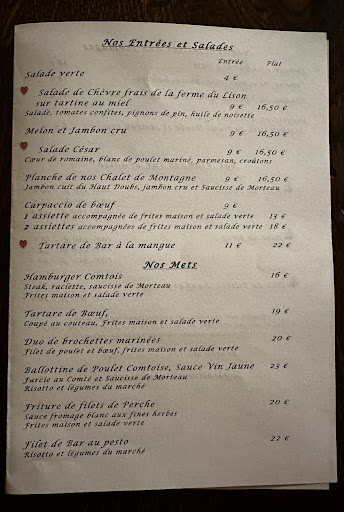 Nos Entrées et Salades
Entrée Plat
Salade verte 4 €
Salade de Chèvre frais de la ferme du Lison
sur tartine au miel 9 € 16,50 €
Salade, tomates confites, pignons de pin, huile de noisette
Melon et Jambon cru 9 € 16,50 €
Salade César 9 € 16,50 €
Cœur de romaine, blanc de poulet mariné, parmesan, croûtons
Planche de nos Chalet de Montagne 9 € 16,50 €
Jambon cuit du Haut Doubs, jambon cru et Saucisse de Morteau
Carpaccio de bœuf 9 €
1 assiette accompagnée de frites maison et salade verte 13 €
2 assiettes accompagnées de frites maison et salade verte 18 €
Tartare de Bar à la mangue 11 € 22 €
Nos Mets
Hamburger Comtois 16 €
Steak, raclette, saucisse de Morteau
Frites maison et salade verte
Tartare de Bœuf, 19 €
Coupé au couteau, Frites maison et salade verte
Duo de brochettes marinées 20 €
Filet de poulet et bœuf, frites maison et salade verte
Ballottine de Poulet Comtoise, Sauce Vin Jaune 23 €
Farcie au Comté et Saucisse de Morteau
Risotto et légumes du marché
Friture de filets de Perche 20 €
Sauce fromage blanc aux fines herbes
Frites maison et salade verte
Filet de Bar au pesto 22 €
Risotto et légumes du marché